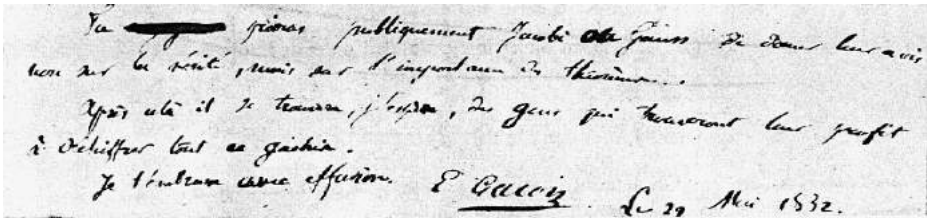 Tu prieras publiquement Jacobi ou Gauss de donner leur avis
non sur la vérité, mais sur l'importance des théorèmes.
Après cela il se trouvera, j'espère, des gens qui trouveront leur profit
à déchiffrer tout ce gâchis.
Je t'embrasse avec effusion. E Galois Le 29 Mai 1832.